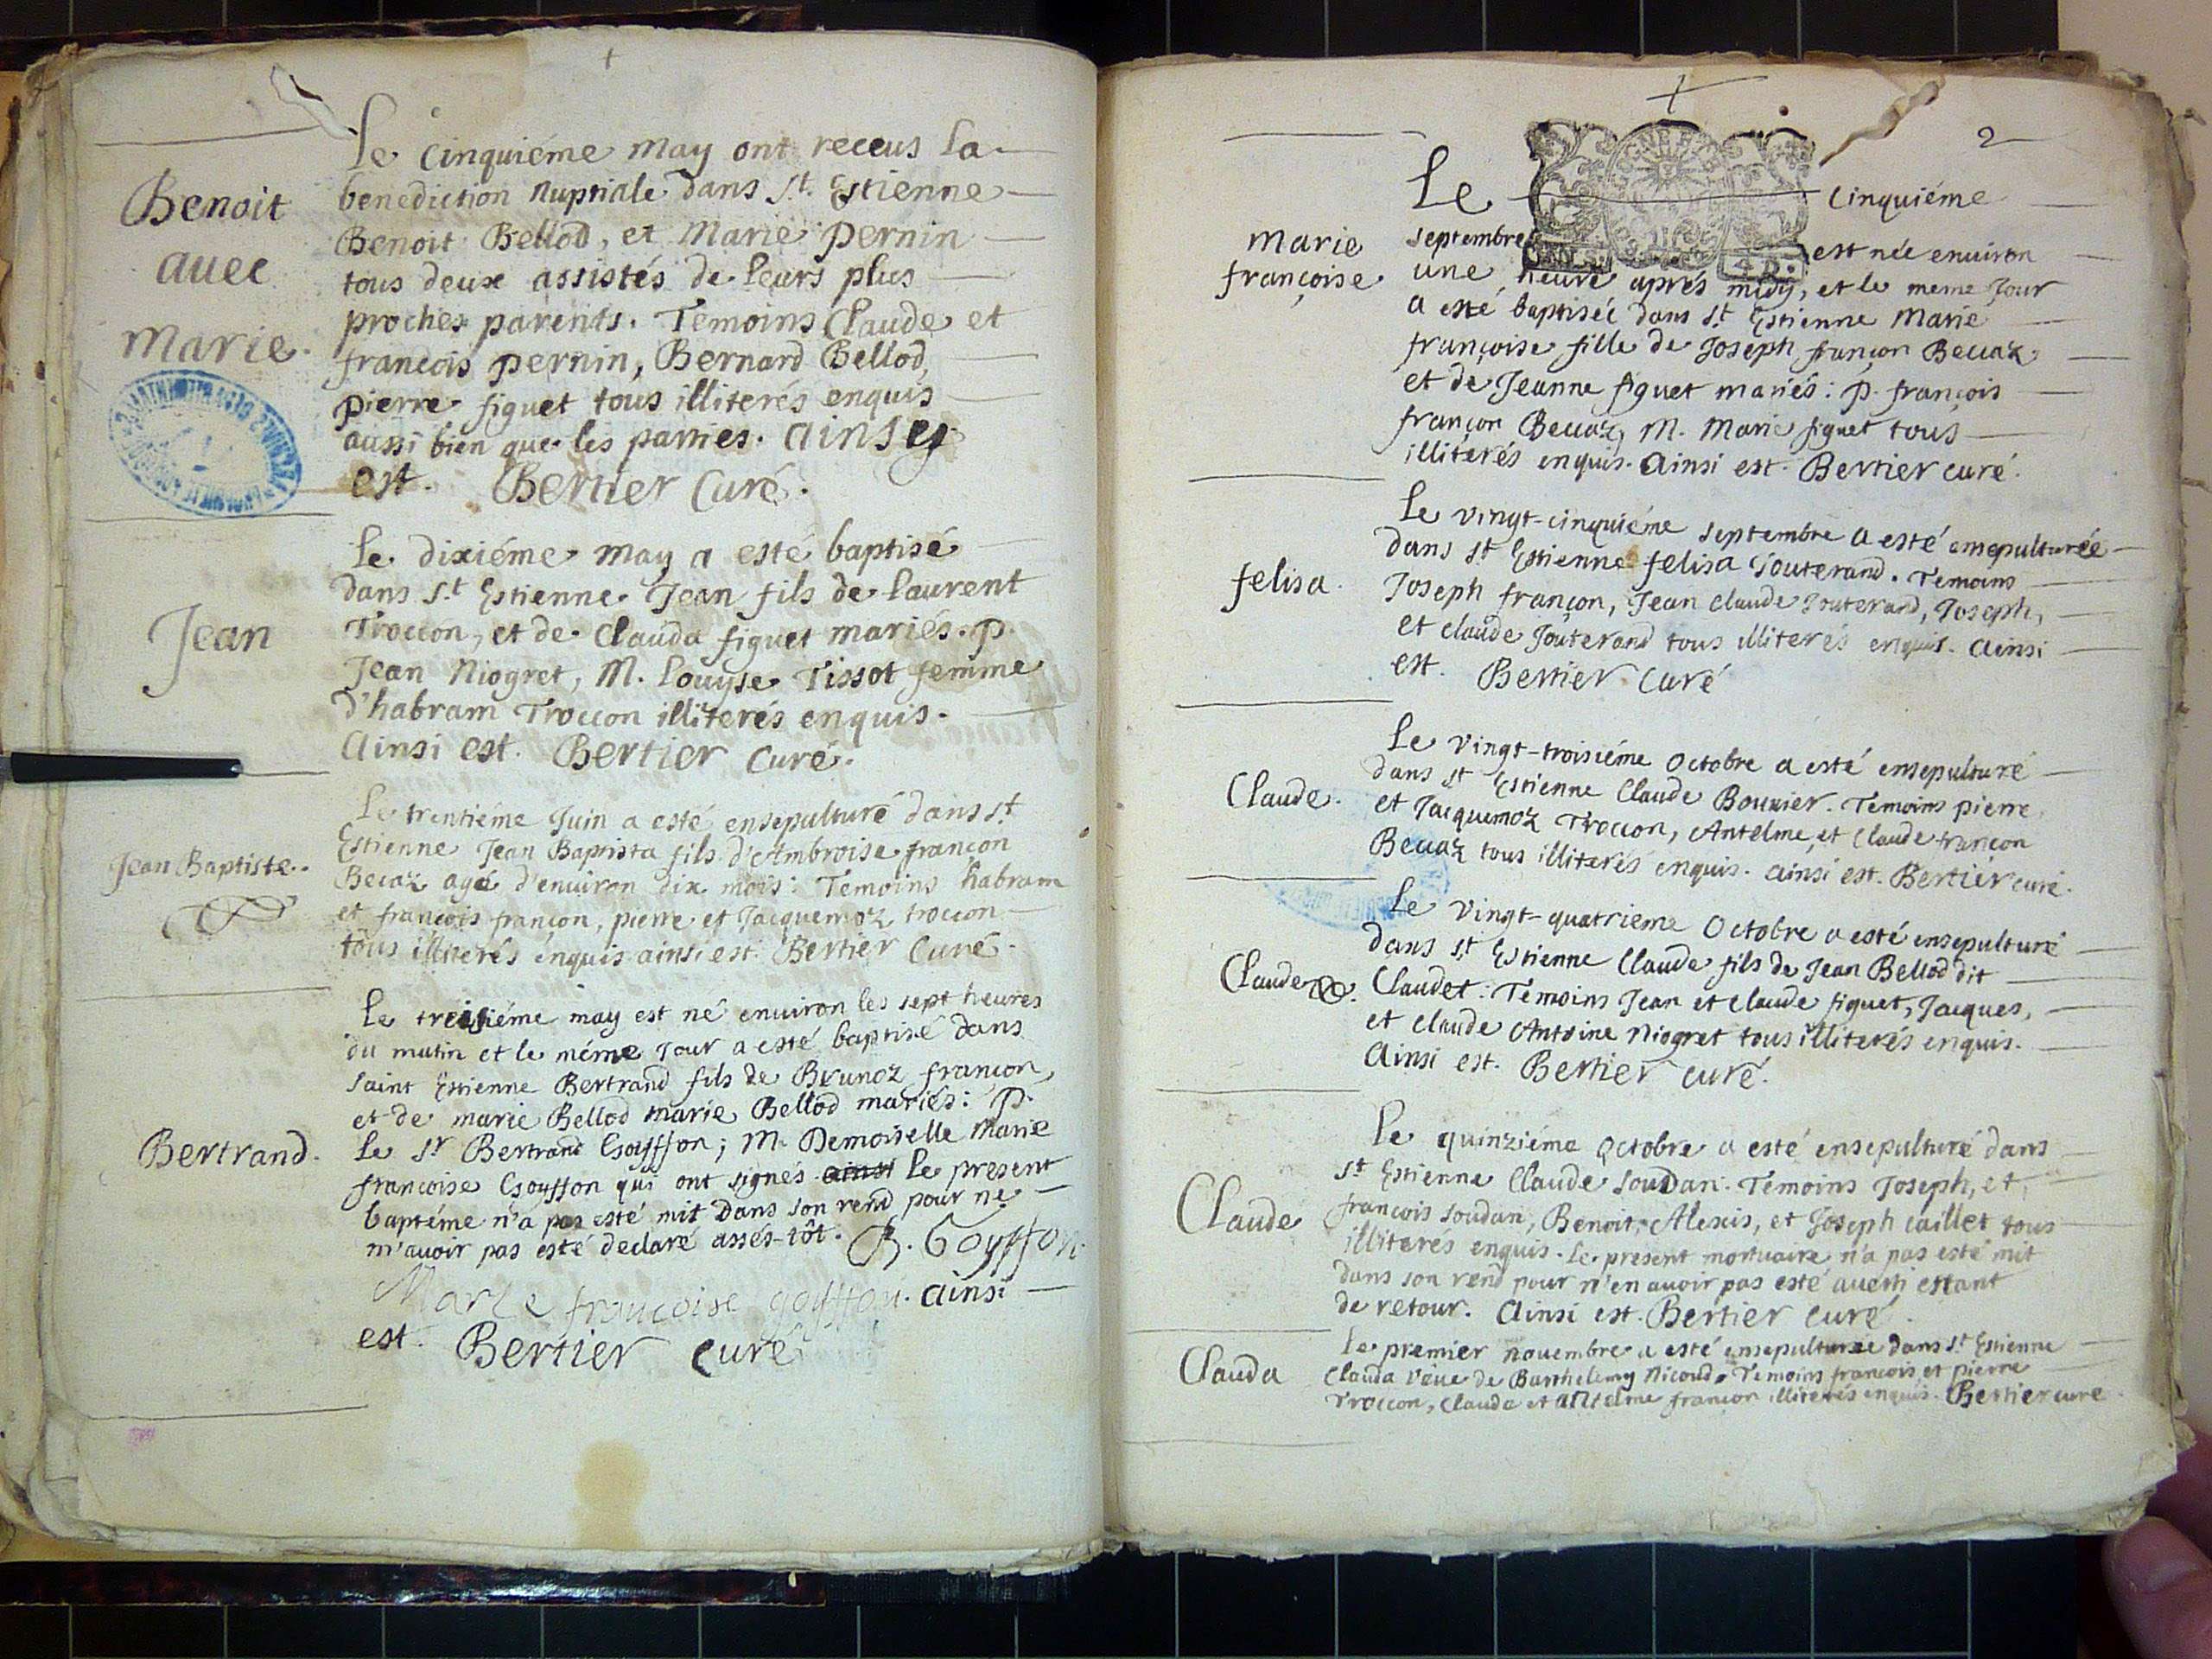 Benoit
avec
Marie.
Le cinquiéme may ont receus la
benediction nuptiale dans St. Estienne
Benoit Bellod, et Marie Pernin
tous deux assistés de leurs plus
proches parents. Temoins Claude et
francois pernin, Bernard Bellod,
pierre figuet tous illiterés enquis
aussi bien que les parties. ainsy
est. Bertier Curé.
Jean
Le dixiéme may a esté baptisé
dans St. Estienne Jean fils de laurent
Troccon, et de Clauda figuet mariés. P.
Jean Niogret, M. Louyse Tissot femme
d'habram Troccon illiterés enquis.
Ainsi est. Bertier Curé.
Jean Baptiste.
Le trentiéme Juin a esté ensepulturé dans St.
Estienne Jean Baptista fils d'Ambroise françon
Becaz agé d'environ dix mois: Temoins habram
et françois françon, pierre et Jacquemoz troccon
tous illiterés enquis ainsi est. Bertier Curé.
Bertrand.
Le treisiéme may est né enuiron les sept heures
du matin et le méme Jour a esté baptisé dans
saint Estienne Bertrand fils de Brunoz françon,
et de marie Bellod marie Bellod mariés: P.
Le Sr Bertrand Goyffon; M. Demoiselle Marie
francoise Goyffon qui ont signés ainsi le present
baptéme n'a pas esté mit dans son rend pour ne
m'auoir pas esté declaré assés-tôt. B. Goyffon
Marie francoise goyffon. ainsi
est. Bertier curé
2
Marie
françoise
Le cinquiéme
septembre est née enuiron
une heure aprés midy, et le meme Jour
a esté baptiséé dans St. Estienne Marie
françoise fille de Joseph françon Beccaz
et de Jeanne figuet mariés: p. françois
françon Beccaz, M. Marie figuet tous
illiterés enquis. Ainsi est. Bertier curé.
felisa.
Le vingt-cinquiéme septembre a esté ensepulturée
dans St. Estienne felisa Jouterand. Temoins
Joseph françon, Jean claude Jouterand, Joseph,
et claude Jouterand tous illiterés enquis. Ainsi
est. Bertier Curé
Claude.
Le vingt-troisiéme Octobre a esté ensepulturé
dans St. Estienne Claude Bouvier. Temoins pierre
et Jacquemoz Troccon, Antelme, et Claude françon
Beccaz tous illiterés enquis. ainsi est. Bertier curé.
Claude.
Le vingt-quatrieme Octobre a esté ensepulturé
dans St. Estienne Claude fils de Jean Bellod dit
Claudet: Temoins Jean et Claude figuet, Jacques,
et claude Antoine Niogret tous illiterés enquis.
Ainsi est. Bertier curé.
Claude
Le quinziéme Octobre a esté ensepulturé dans
St. Estienne Claude Soudan. Temoins Joseph, et
francois soudan, Benoit, Alexis, et Joseph caillet tous
illiterés enquis. Le present mortuaire n'a pas esté mit
dans son rend pour n'en auoir pas esté auerti estant
de retour. Ainsi est. Bertier curé.
Clauda
Le premier nouembre a esté ensepulturée dans St. Estienne
Clauda veue de Barthelemy Nicoud. Temoins francois et pierre
Troccon, Claude et Antelme françon illiterés enquis. Bertier curé